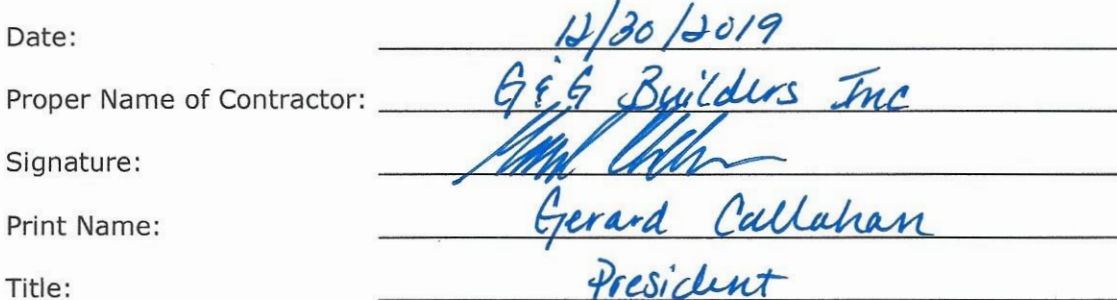 Date: 12/30/2019
Proper Name of Contractor: G&G Builders Inc
Signature:
Print Name: Gerard Callahan
Title: President